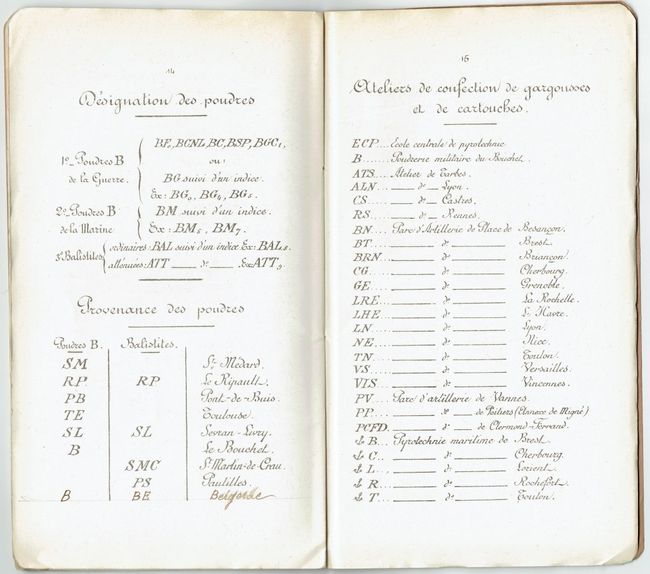 14
Désignation des poudres
BF, BCNL, BC, BSP, BGC₁,
ou:
1º_ Poudres B
de la Guerre.
BG suivi d'un indice.
Ex: BG₀, BG₄, BG₅.
2º_ Poudres B
de la Marine
BM suivi d'un indice.
Ex: BM₅, BM₇.
3º Balistites
ordinaires: BAL suivi d'un indice Ex: BAL
atténuées: ATT ____ dº ____ Ex: ATT₉
Provenance des poudres
Poudres B. Balistites.
SM St Médard.
RP RP Le Ripault.
PB Pont-de-Buis.
TE Toulouse.
SL SL Sevran-Livry.
B Le Bouchet.
SMC St Martin-de-Crau.
PS Paulilles.
B BE
15
Ateliers de confection de gargousses
et de cartouches.
ECP... Ecole centrale de pyrotechnie
B...... Poudrerie militaire du Bouchet.
ATS.... Atelier de Tarbes.
ALN.. ____ dº ____ Lyon.
CS.... ____ dº ____ Castres.
RS.... ____ dº ____ Rennes
BN.... Parc d'Artillerie de Place de Besançon.
BT.... ____ dº ____ Brest.
BRN... ____ dº ____ Briançon.
CG.... ____ dº ____ Cherbourg.
GE.... ____ dº ____ Grenoble.
LRE... ____ dº ____ La Rochelle.
LHE... ____ dº ____ Le Havre.
LN.... ____ dº ____ Lyon.
NE.... ____ dº ____ Nice.
TN.... ____ dº ____ Toulon.
VS.... ____ dº ____ Versailles.
VIS... ____ dº ____ Vincennes.
PV.... Parc d'artillerie de Vannes.
PP.... ____ dº ____ de Poitiers (Annexe de Migné)
PCFD.. ____ dº ____ de Clermond-Ferrand.
⚓ B... Pyrotechnie maritime de Brest.
⚓ C... ____ dº ____ Cherbourg.
⚓ L... ____ dº ____ Lorient.
⚓ R... ____ dº ____ Rochefort.
⚓ T... ____ dº ____ Toulon.